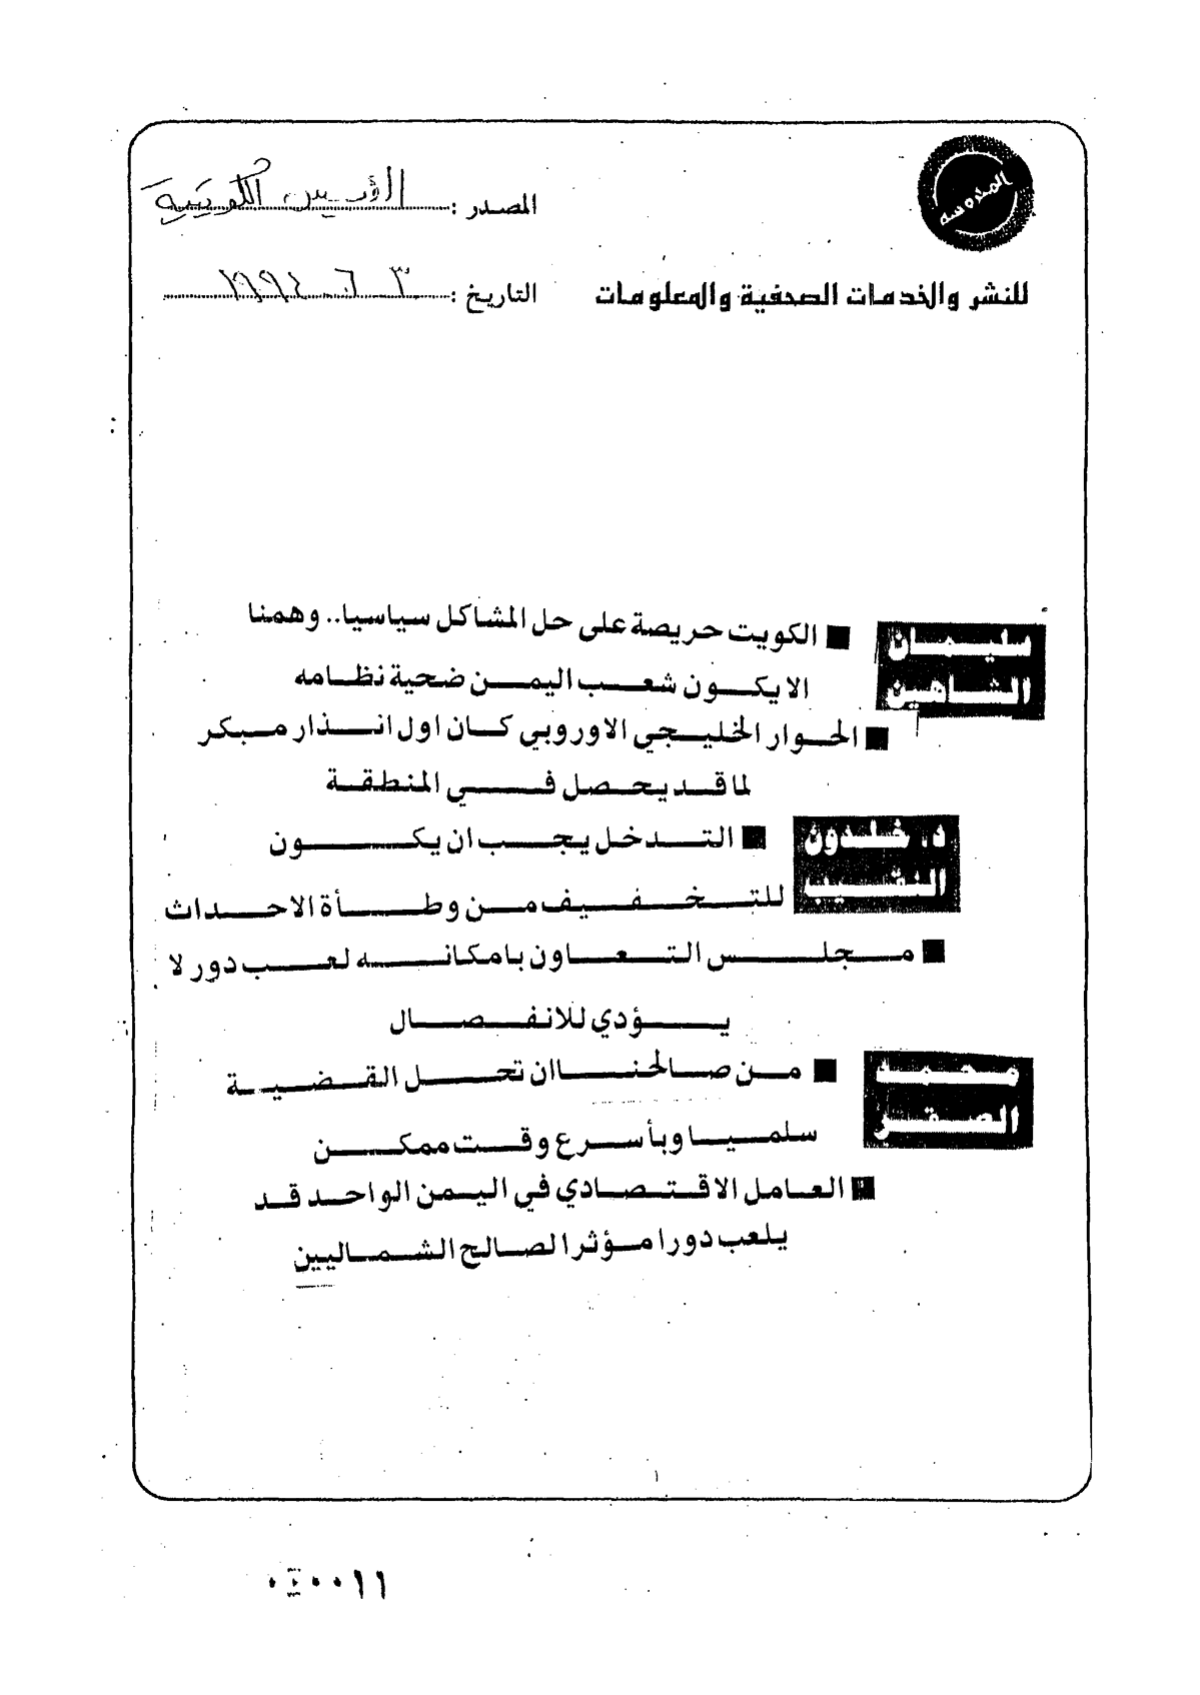 المصدر : القبس الكويتية
للنشر والخدمات الصحفية والمعلومات
التاريخ : ٣ ٦ ١٩٩٤
سليمان
الشاهين
■ الكويت حريصة على حل المشاكل سياسيا.. وهمنا
الا يكون شعب اليمن ضحية نظامه
■ الحوار الخليجي الاوروبي كان اول انذار مبكر
لما قد يحصل في المنطقة
د. خلدون
النقيب
■ التدخل يجب ان يكون
للتخفيف من وطأة الاحداث
■ مجلس التعاون بامكانه لعب دور لا
يؤدي للانفصال
محمد
الصقر
■ من صالحنا ان تحل القضية
سلميا وبأسرع وقت ممكن
■ العامل الاقتصادي في اليمن الواحد قد
يلعب دورا مؤثرا لصالح الشماليين